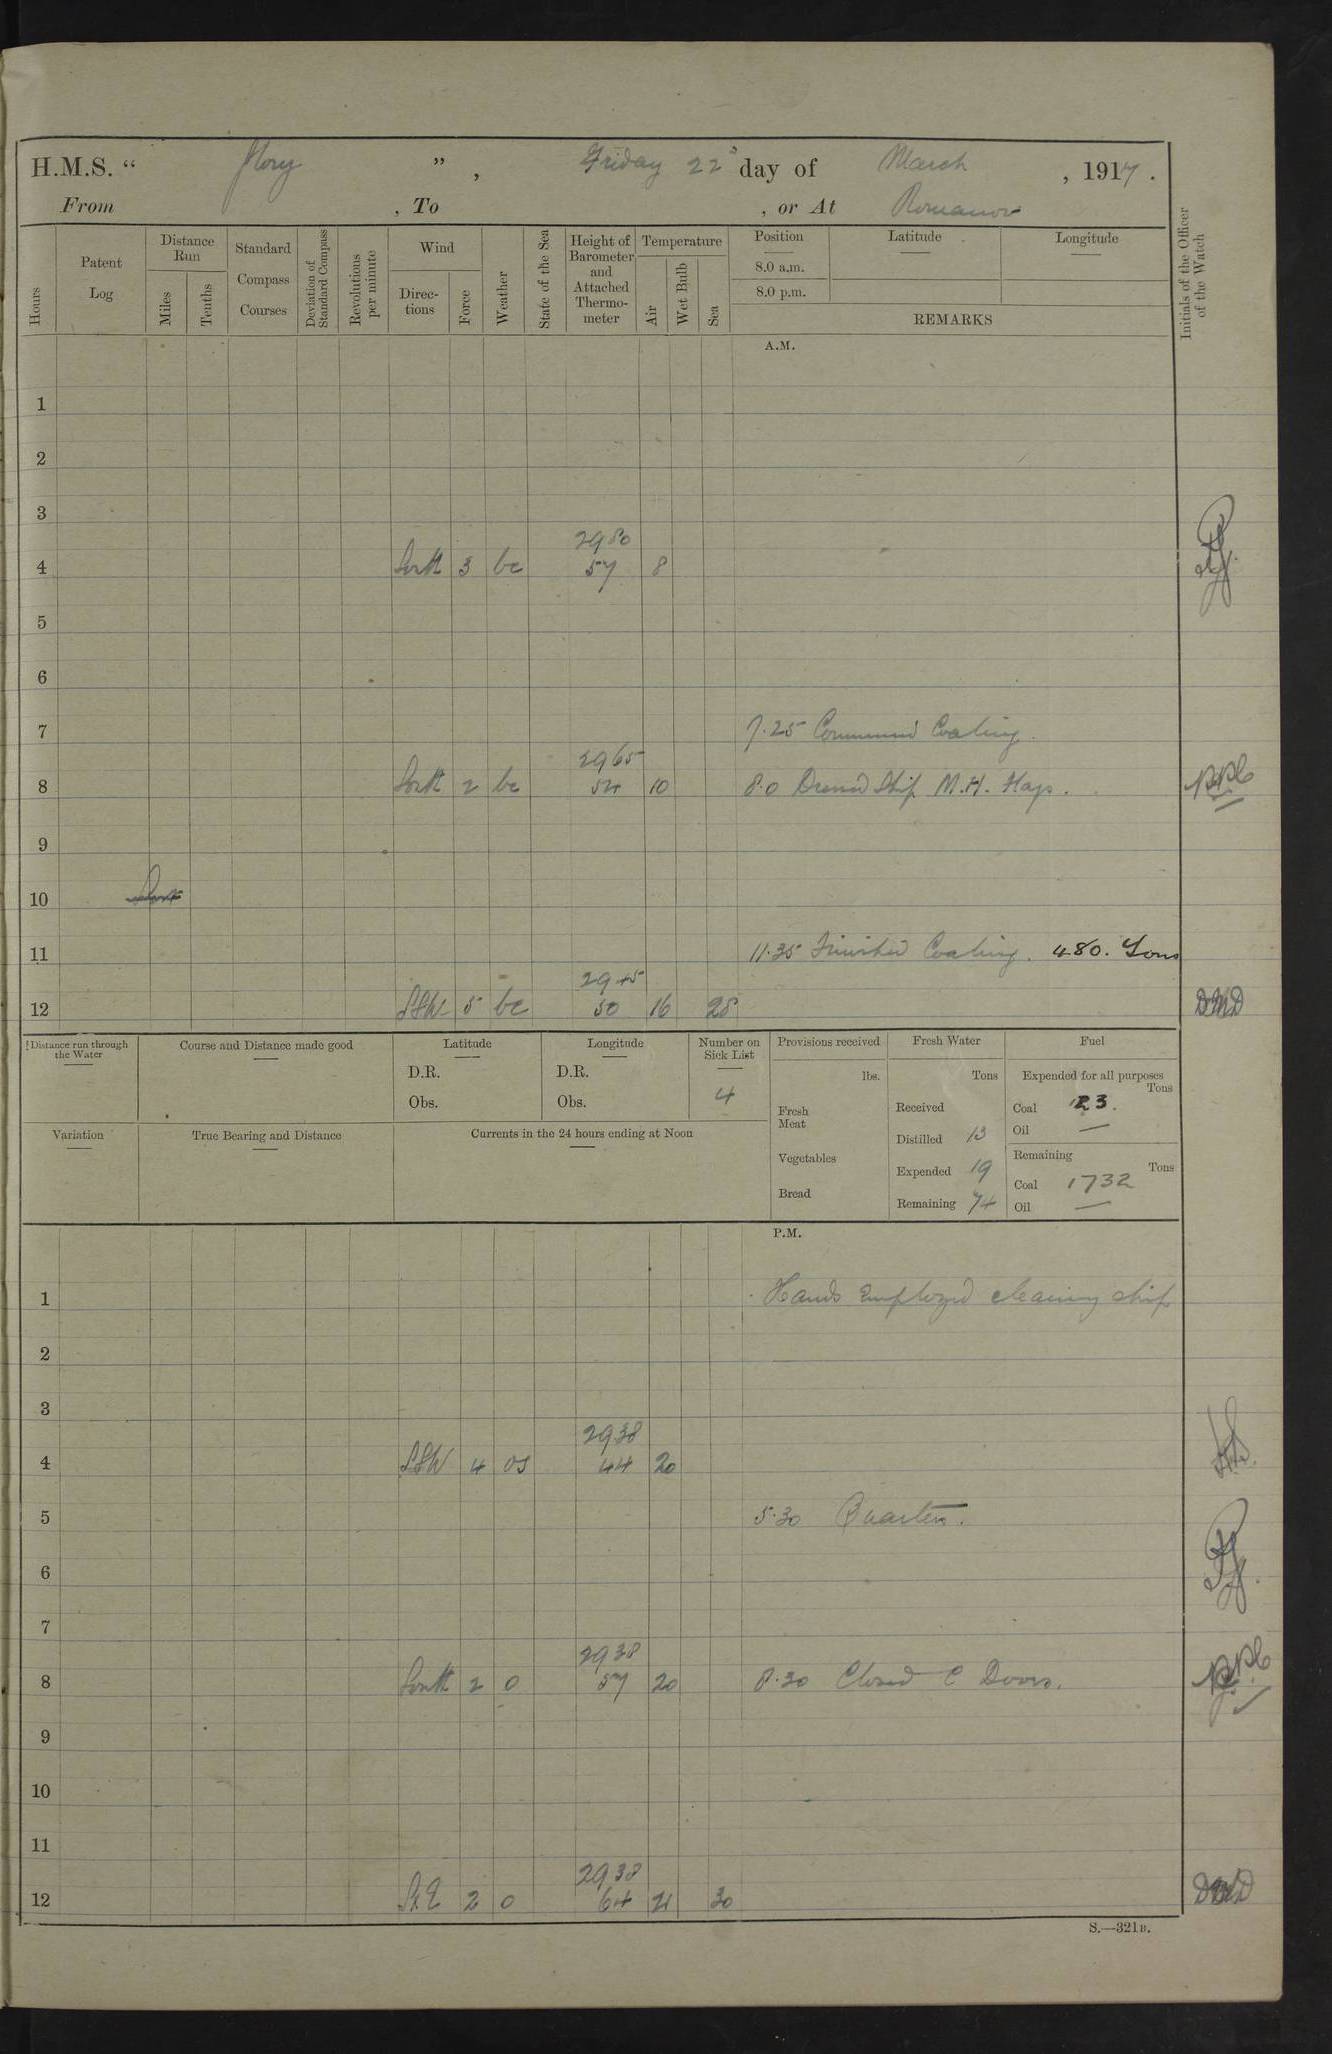 H.M.S. “ Glory ” , Friday 22d day of March , 1917 .
From , To , or At Romanov
Hours
Patent Log
Distance Run
Miles
Tenths
Standard Compass Courses
Deviation of Standard Compass
Revolutions per minute
Wind
Directions
Force
Weather
State of the Sea
Height of Barometer and Attached Thermometer
Temperature
Air
Wet Bulb
Sea
Position
8.0 a.m.
8.0 p.m.
Latitude
Longitude
REMARKS
Initials of the Officer of the Watch
A.M.
1
2
3
2980
4 South 3 bc 57 8
5
6
7 7.25 Commenced Coaling.
2965
8 South 2 bc 54 10 8.0 Dressed Ship M.H. Flags.
9
10
11 11.35 Finished Coaling. 480. Tons
2945
12 SSW 5 bc 50 16 28 DMD
Distance run through the Water
Course and Distance made good
Latitude
D.R.
Obs.
Longitude
D.R.
Obs.
Number on Sick List
4
Provisions received
lbs.
Fresh Meat
Vegetables
Bread
Fresh Water
Tons
Received
Distilled 13
Expended 19
Remaining 74
Fuel
Expended for all purposes
Tons
Coal 123.
Oil —
Remaining
Tons
Coal 1732
Oil —
Variation
True Bearing and Distance
Currents in the 24 hours ending at Noon
P.M.
1 Hands employed cleaning ship
2
3
2938
4 SSW 4 os 44 20
5 5.30 Quarters.
6
7
2938
8 South 2 o 57 20 8.30 Closed C Doors.
9
10
11
2938
12 SxE 2 o 64 21 30 DMD
S.—321B.